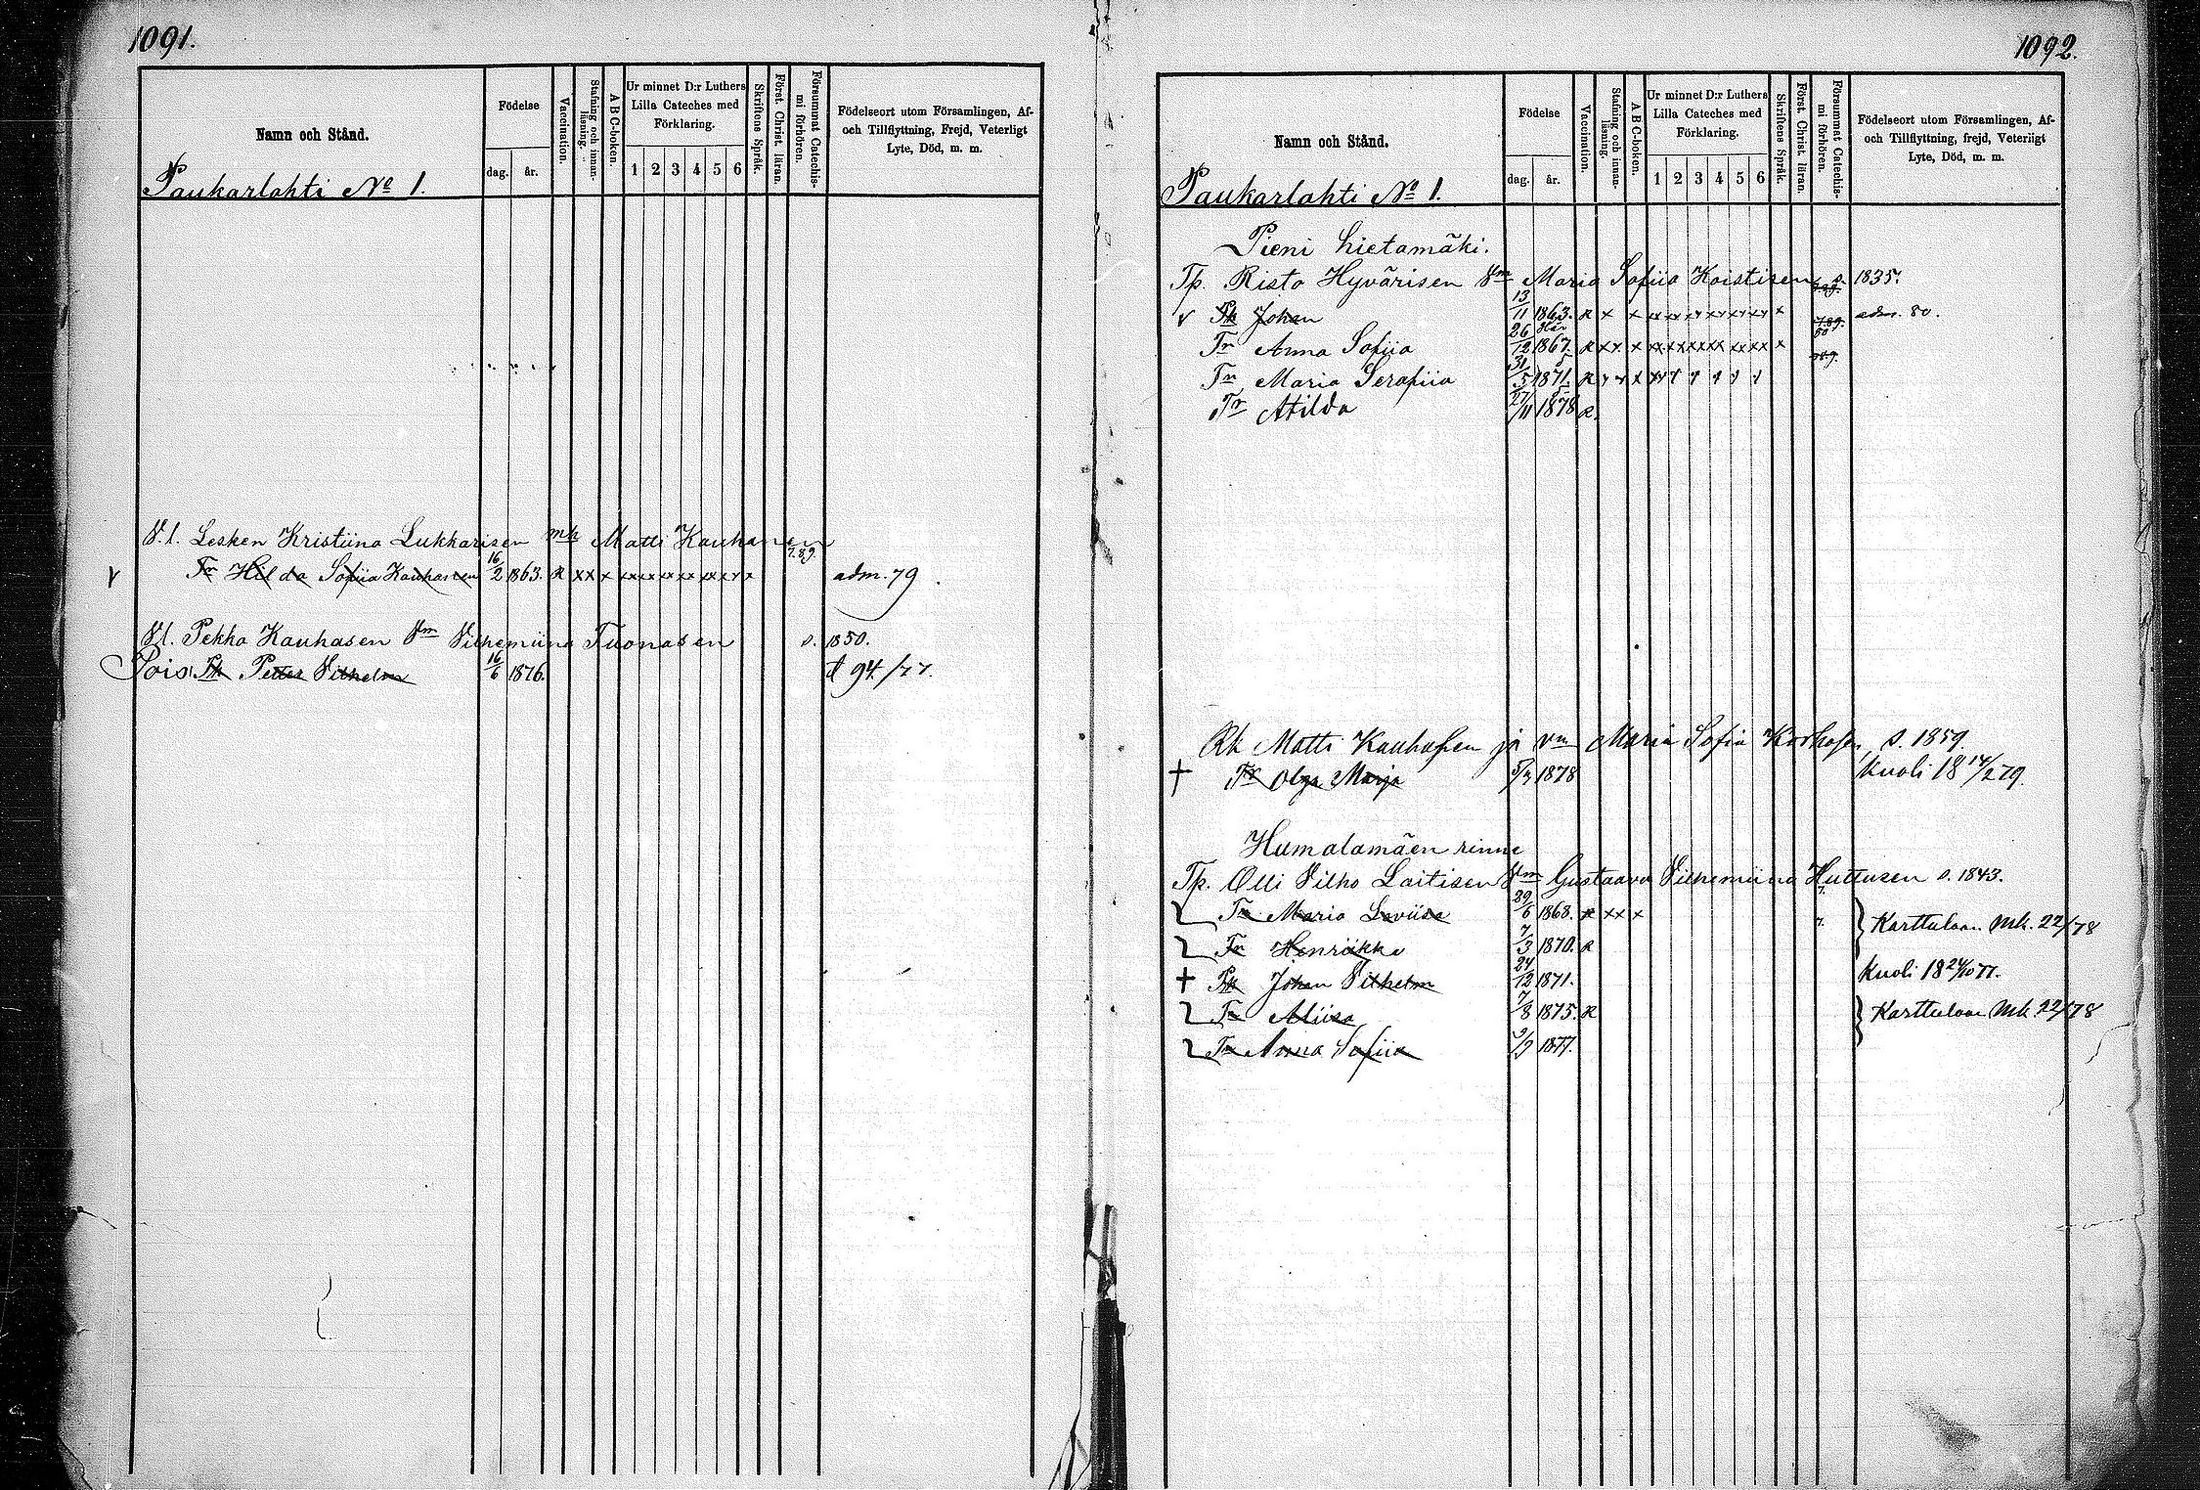 1091.
Namn och Stånd.
Födelse
dag. år.
Vaccination.
Stafning och innanläsning.
A B C-boken.
Ur minnet D:r Luthers Lilla Cateches med Förklaring.
1 2 3 4 5 6
Skriftens Språk.
Först. Christ. läran.
Försummat Catechismi förhören.
Födelseort utom Församlingen, Af- och Tillflyttning, Frejd, Veterligt Lyte, Död, m. m.
Paukarlahti No 1.
V.l. Lesken Kristiina Lukkarisen mk Matti Kauhanen
Tr Hilda Sofiia Kauhanen 16/2 1863. R xx x xx xx xx xx xx xx x 7.8.9. adm. 79
V.l. Pekka Kauhasen Vm Vilhemiina Tuonasen s. 1850.
Pois Pk Petter Vilhelm 16/6 1876. d 94/77.
1092.
Namn och Stånd.
Födelse
dag. år.
Vaccination.
Stafning och innanläsning.
A B C-boken.
Ur minnet D:r Luthers Lilla Cateches med Förklaring.
1 2 3 4 5 6
Skriftens Språk.
Först. Christ. läran.
Försummat Catechismi förhören.
Födelseort utom Församlingen, Af- och Tillflyttning, frejd, Veterligt Lyte, Död, m. m.
Paukarlahti No 1.
Pieni hietamäki.
Tp. Risto Hyvärisen Vm Maria Sofiia Koistisen s. 1835.
v Pk Johan 13/11 1863. R x x xx xx xx xx xx xx x adm. 80.
Tr Anna Sofiia 26/12 1867. R xx x xx xx xx xx xx xx x
Tr Maria Serafiia 31/5 1871. R
Tr Atilda 27/11 1878 R.
Rk Matti Kauhasen ja vm Maria Sofia Korhosen, s. 1859.
† Tr Olga Marja 1878 Kuoli 18 14/2 79.
Humalamäen rinne
Tp. Olli Vilho Laitisen Vm Gustaava Vilhemiina Huttusen s. 1843.
Tr Maria Loviisa 29/6 1868. R xx x 7. Karttulaan Mk. 22/78
Tr Henriikka 7/3 1870. R
† Pk Johan Vilhelm 24/12 1871. Kuoli 18 24/10 77.
Tr Aliisa 7/8 1875. R Karttulaan Mk. 22/78
Tr Anna Sofiia 1877.